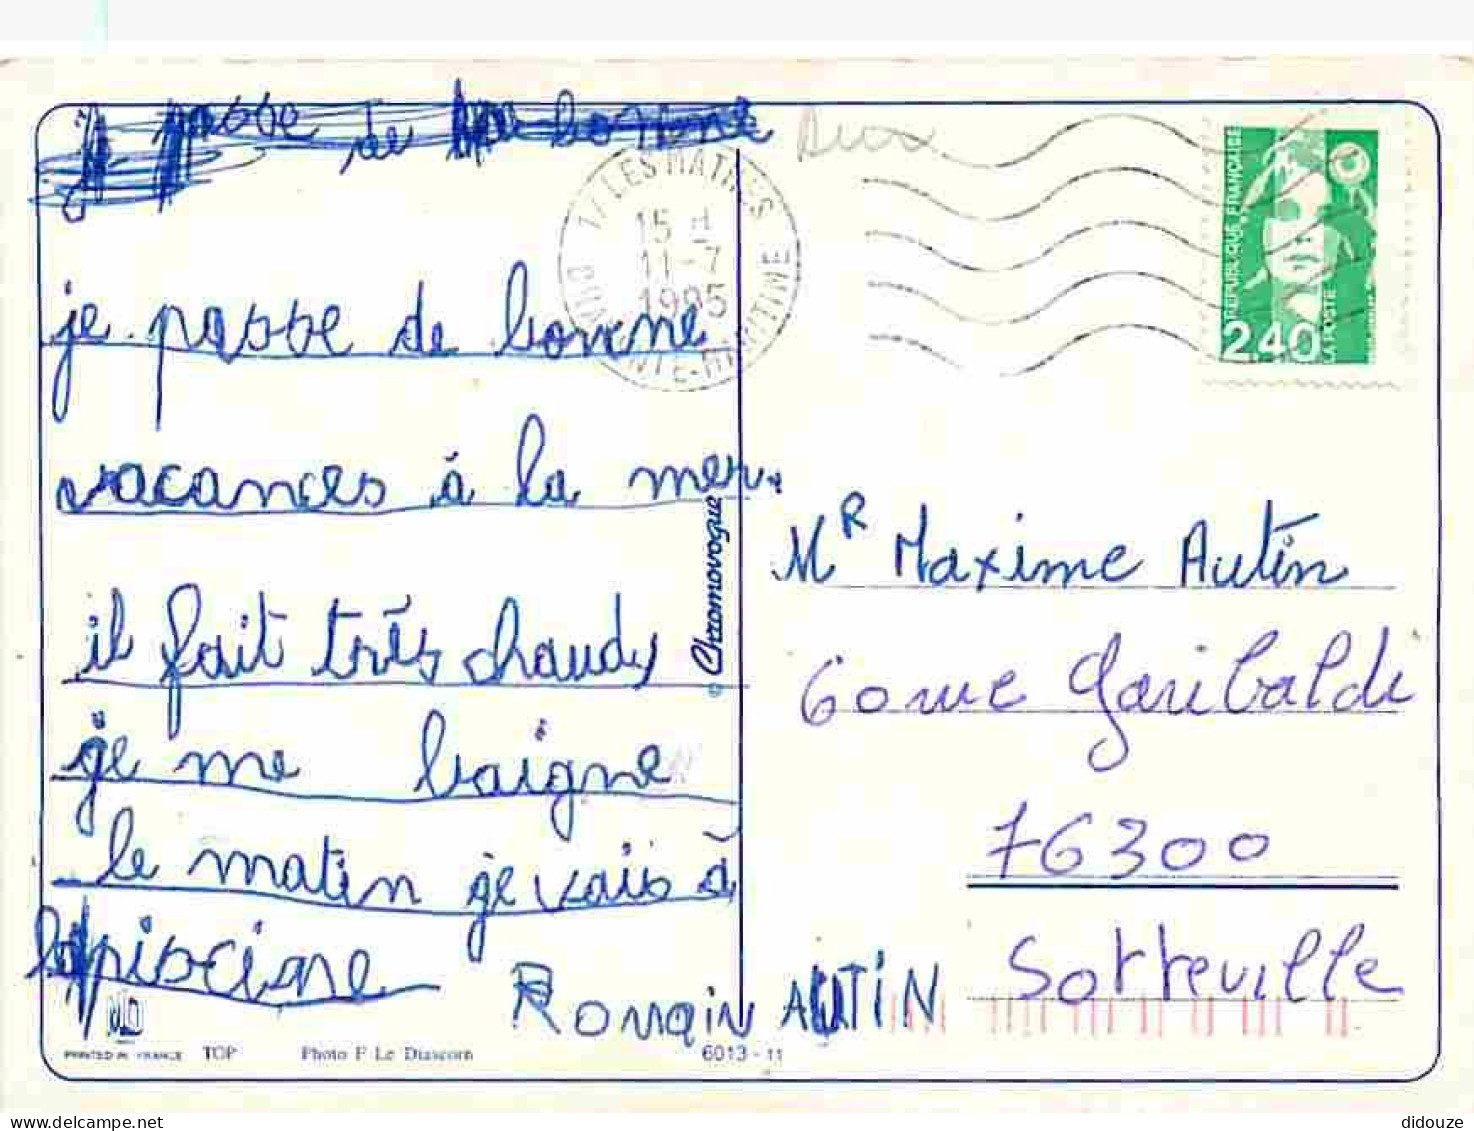 passe de bonne
Deux
17 LES MATHES
15 H
11-7
1995
CHARENTE-MARITIME
REPUBLIQUE FRANÇAISE
2,40
LA POSTE
je passe de bonne
vacances à la mer.
il fait très chaud,
je me baigne
le matin je vais à
la piscine
Romain AUTIN
© Chromovogue
MR Maxime Autin
60 rue Garibaldi
76300
Sotteville
PRINTED IN FRANCE TOP Photo F Le Diascorn 6013 - 11
didouze